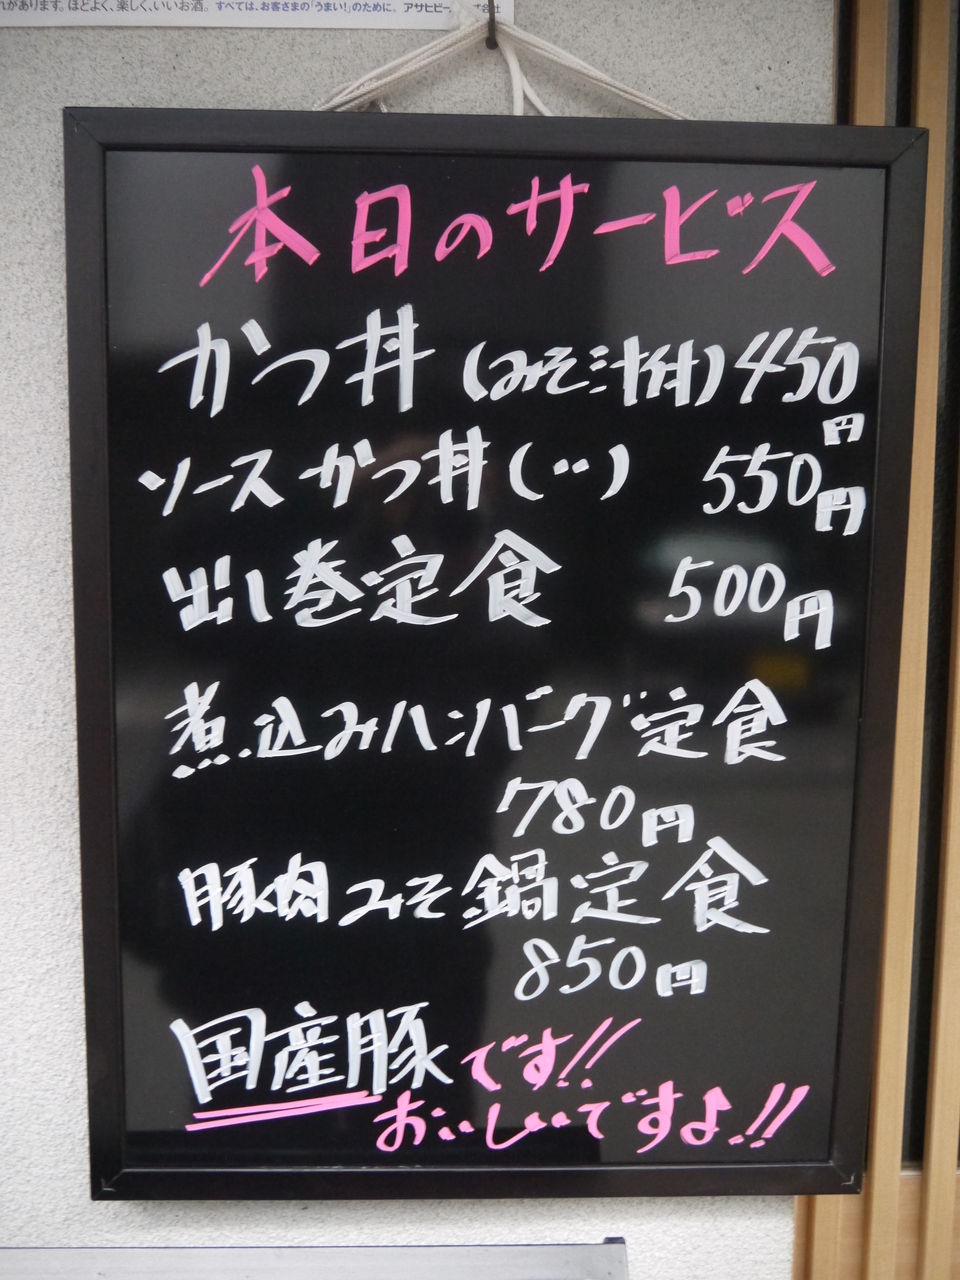 れがあります。ほどよく、楽しく、いいお酒。すべては、お客さまの「うまい!」のために。アサヒビー
本日のサービス
かつ丼(みそ汁付)450円
ソースかつ丼(〃) 550円
出し巻定食 500円
煮込みハンバーグ定食
780円
豚肉みそ鍋定食
850円
国産豚です!!
おいしいですよ!!